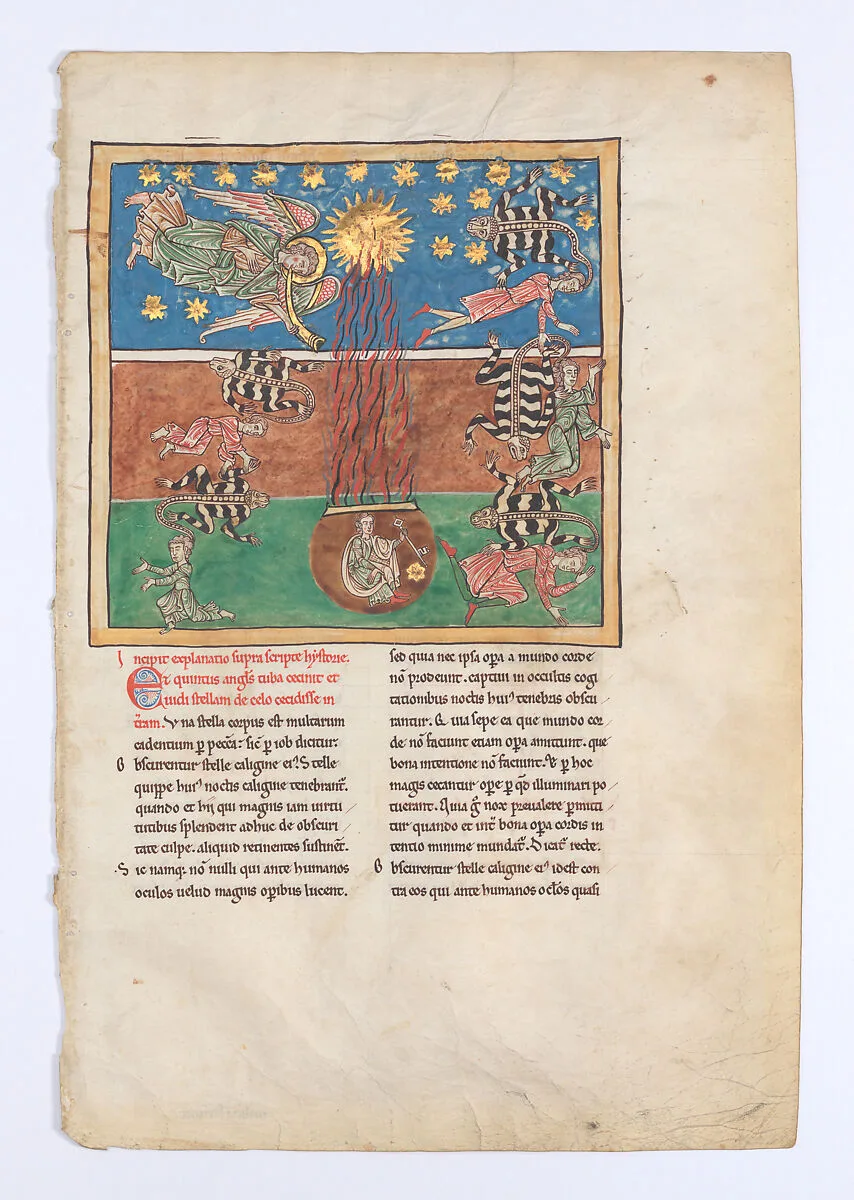 Incipit explanatio supra scripte hystorie.
Et quintus angls tuba cecinit et
uidi stellam de celo cecidisse in
tram. Una stella corpus est multarum
cadentium p pecca: sic p iob dicitur.
Obscurentur stelle caligine ei9. Stelle
quippe hui9 noctis caligine tenebrant.
quando et hij qui magnis iam uirtu
tutibus splendent adhuc de obscuri
tate culpe. aliquid retinentes sustinet.
Sic namq. no nulli qui ante humanos
oculos uelud magnis opibus lucent.
sed quia nec ipsa opa a mundo corde
no prodeunt. captiui in occultis cogi
tationibus noctis hui9 tenebris obscu
rantur. & uia sepe ea que mundo cor
de no faciunt etiam opa amittunt. que
bona intentione no faciunt. & p hoc
magis cecantur ope p qd illuminari po
tuerant. Quia g nox preualere pmitti
tur quando et int bona opa cordis in
tentio minime mundat. Dicat recte.
Obscurentur stelle caligine ei9 idest con
tra eos qui ante humanos oclos quasi